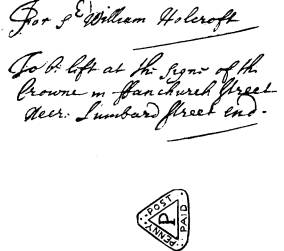 For Sr William Holcroft
To be left at the signe of the
Crowne in ffanchurch street
neer: Lumbard street end.
PENNY POST PAID
P